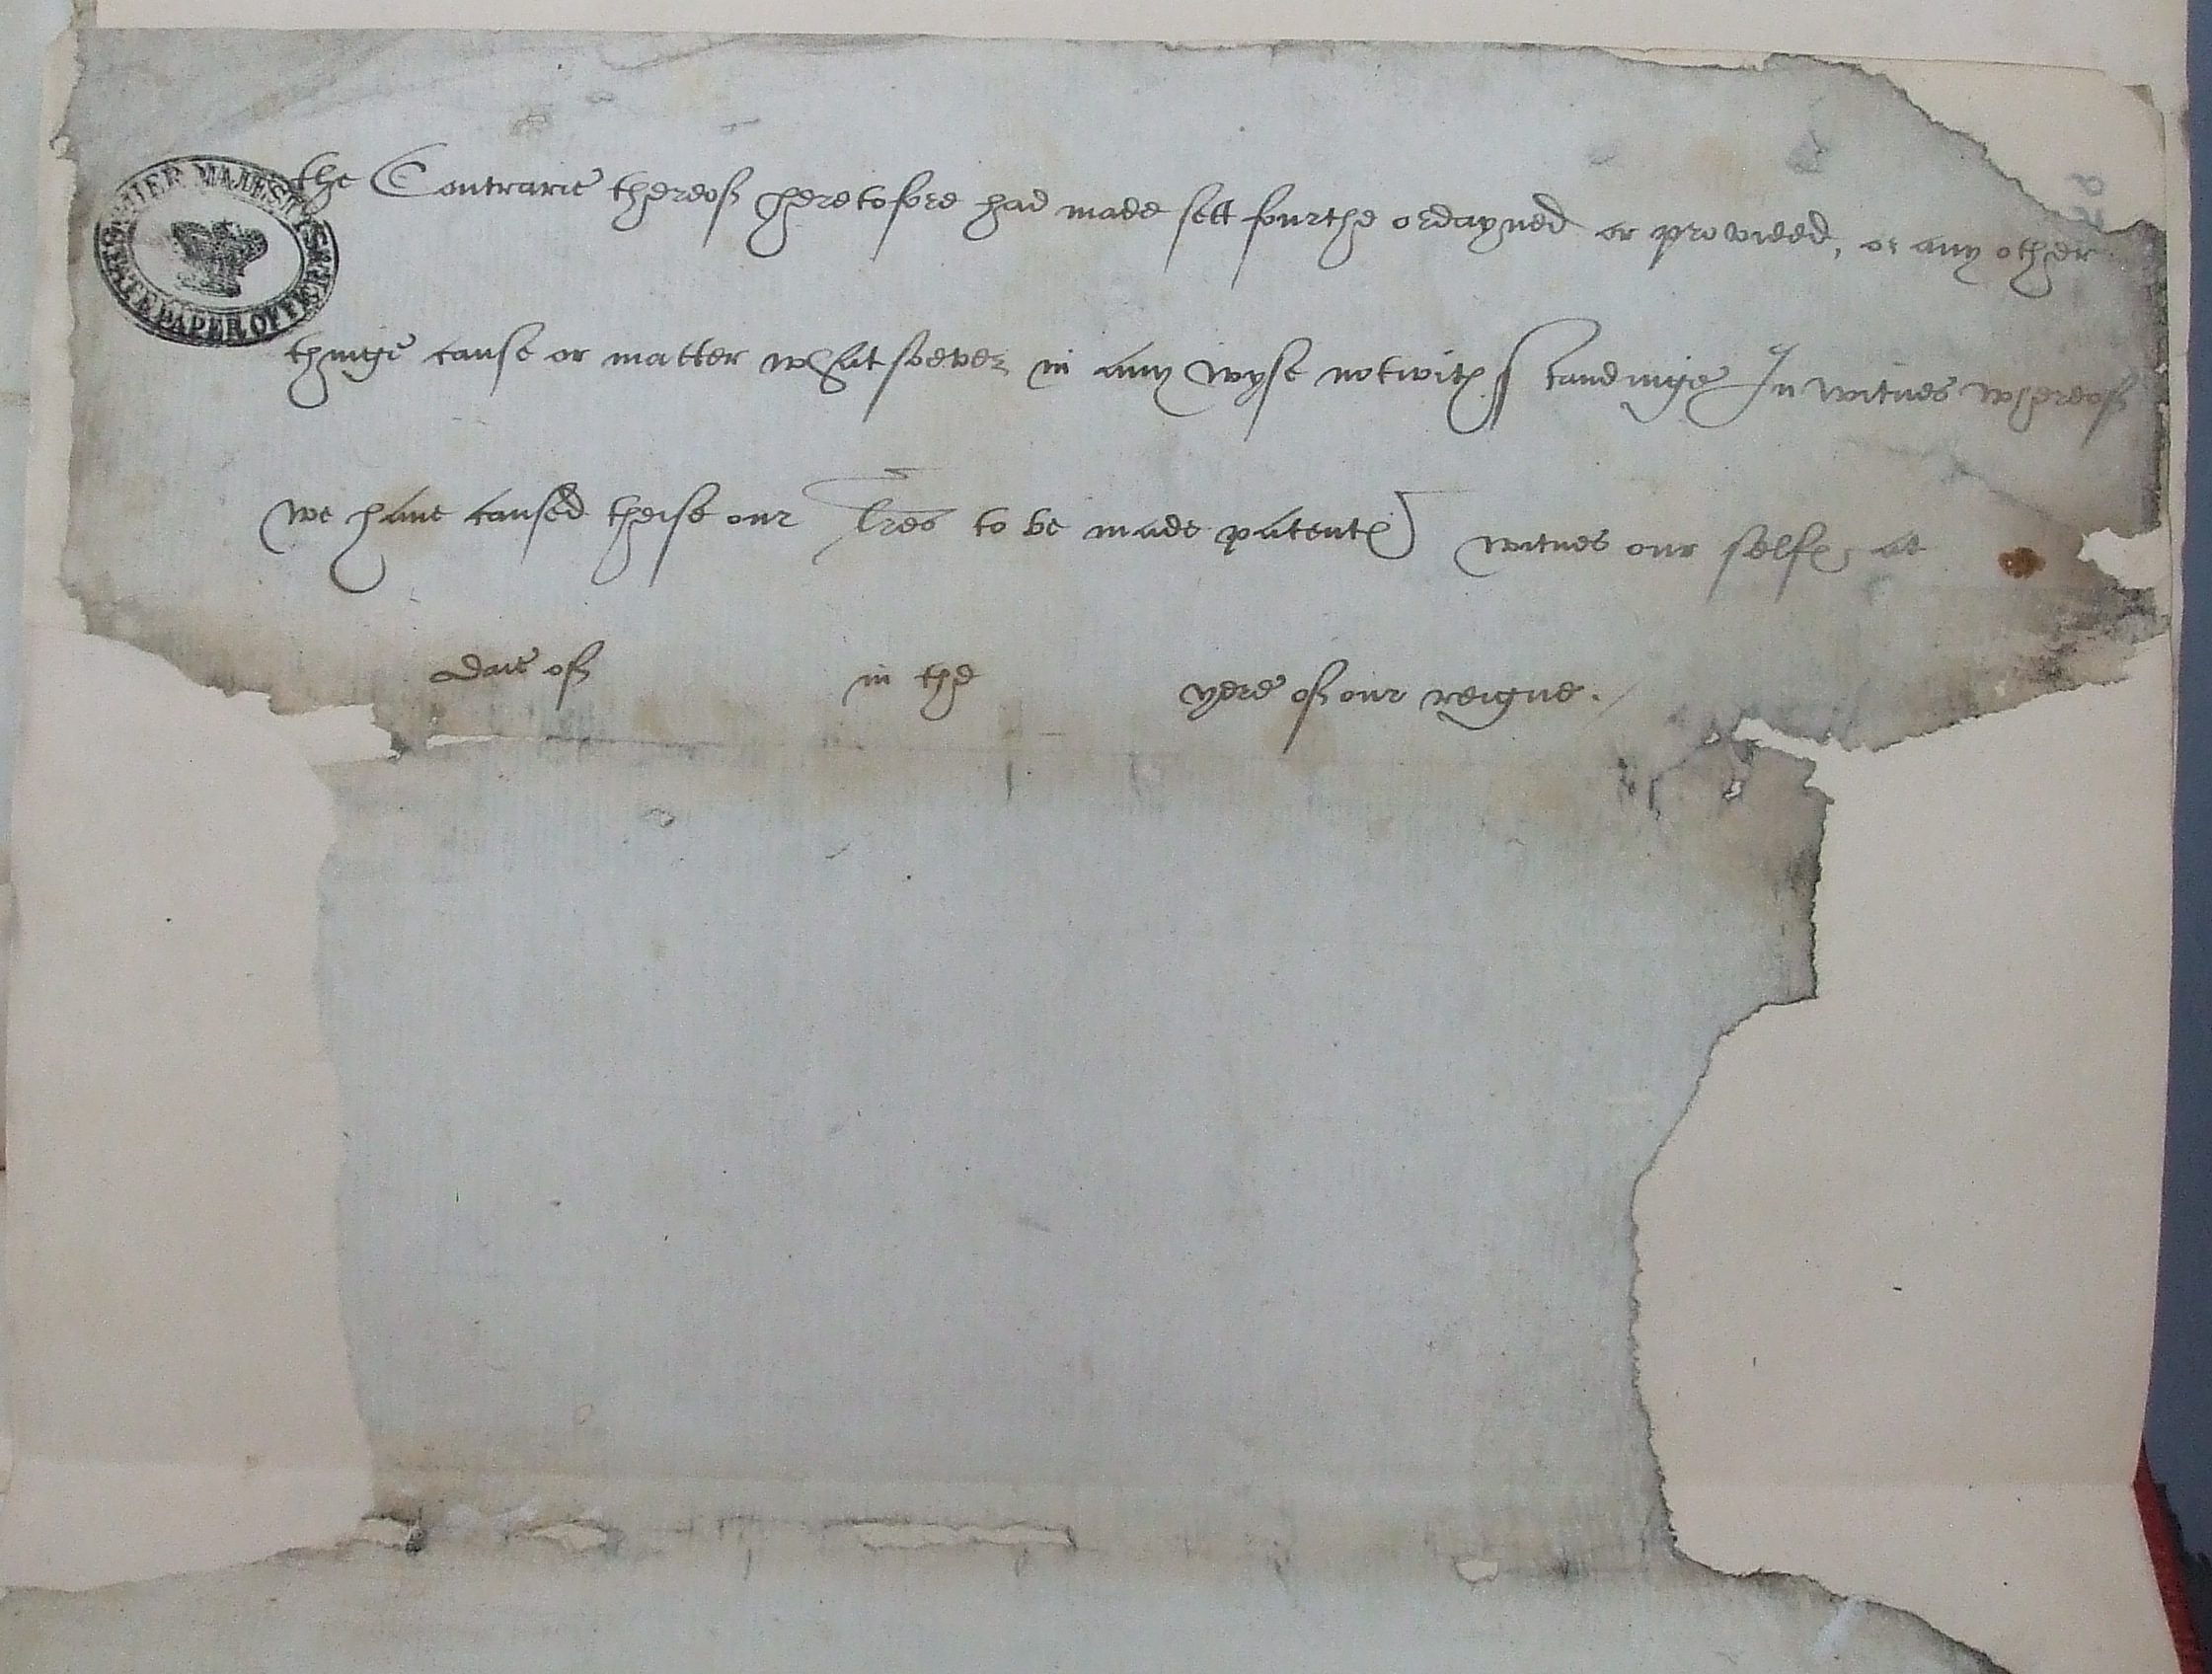 HER MAJESTY'S
STATE PAPER OFFICE
the Contrarie thereof heretofore had made sett fourthe ordayned or provided, or any other
thinge cause or matter whatsoever in any wyse notwithstandinge In witnes whereof
we have caused theise our lres to be made patent witnes our self at
daie of in the yere of our reigne.